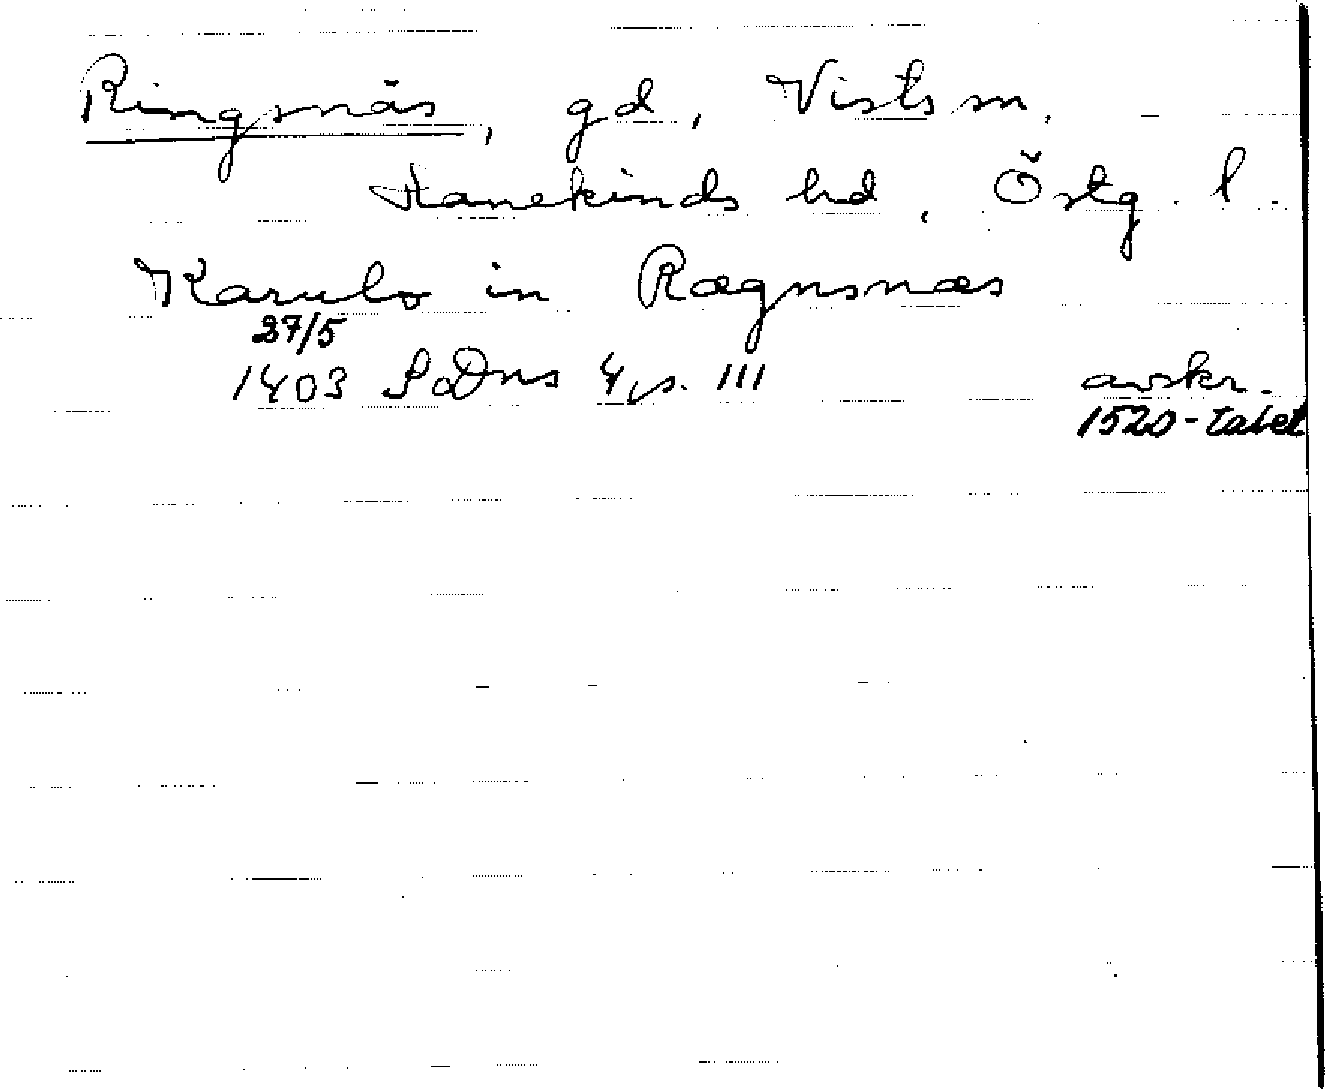 Ringsnäs, gd, Vists sn,
Hanekinds hd, Östg. l.
Karulo in Rægnsnæs
27/5
1403 SoDns 4, s. 111 avskr.
1520-talet